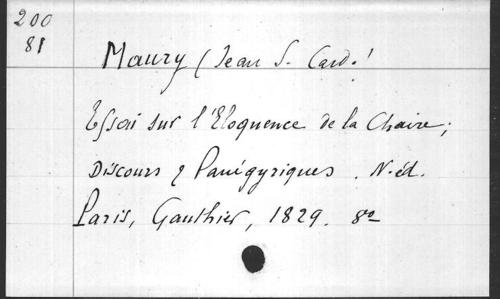 200
81
Maury (Jean S. Card.)
Essai sur l'Eloquence de la Chaire;
Discours & Panégyriques. N. éd.
Paris, Gauthier, 1829. 8o